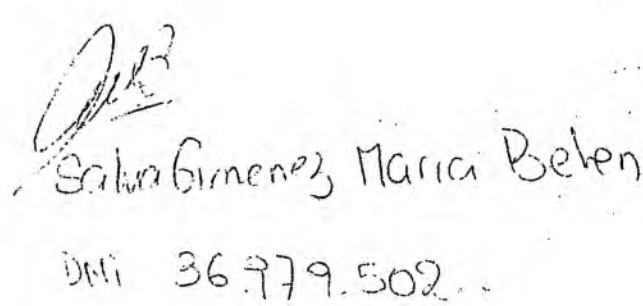 Salva Gimenez Maria Belen
DNI 36.979.502